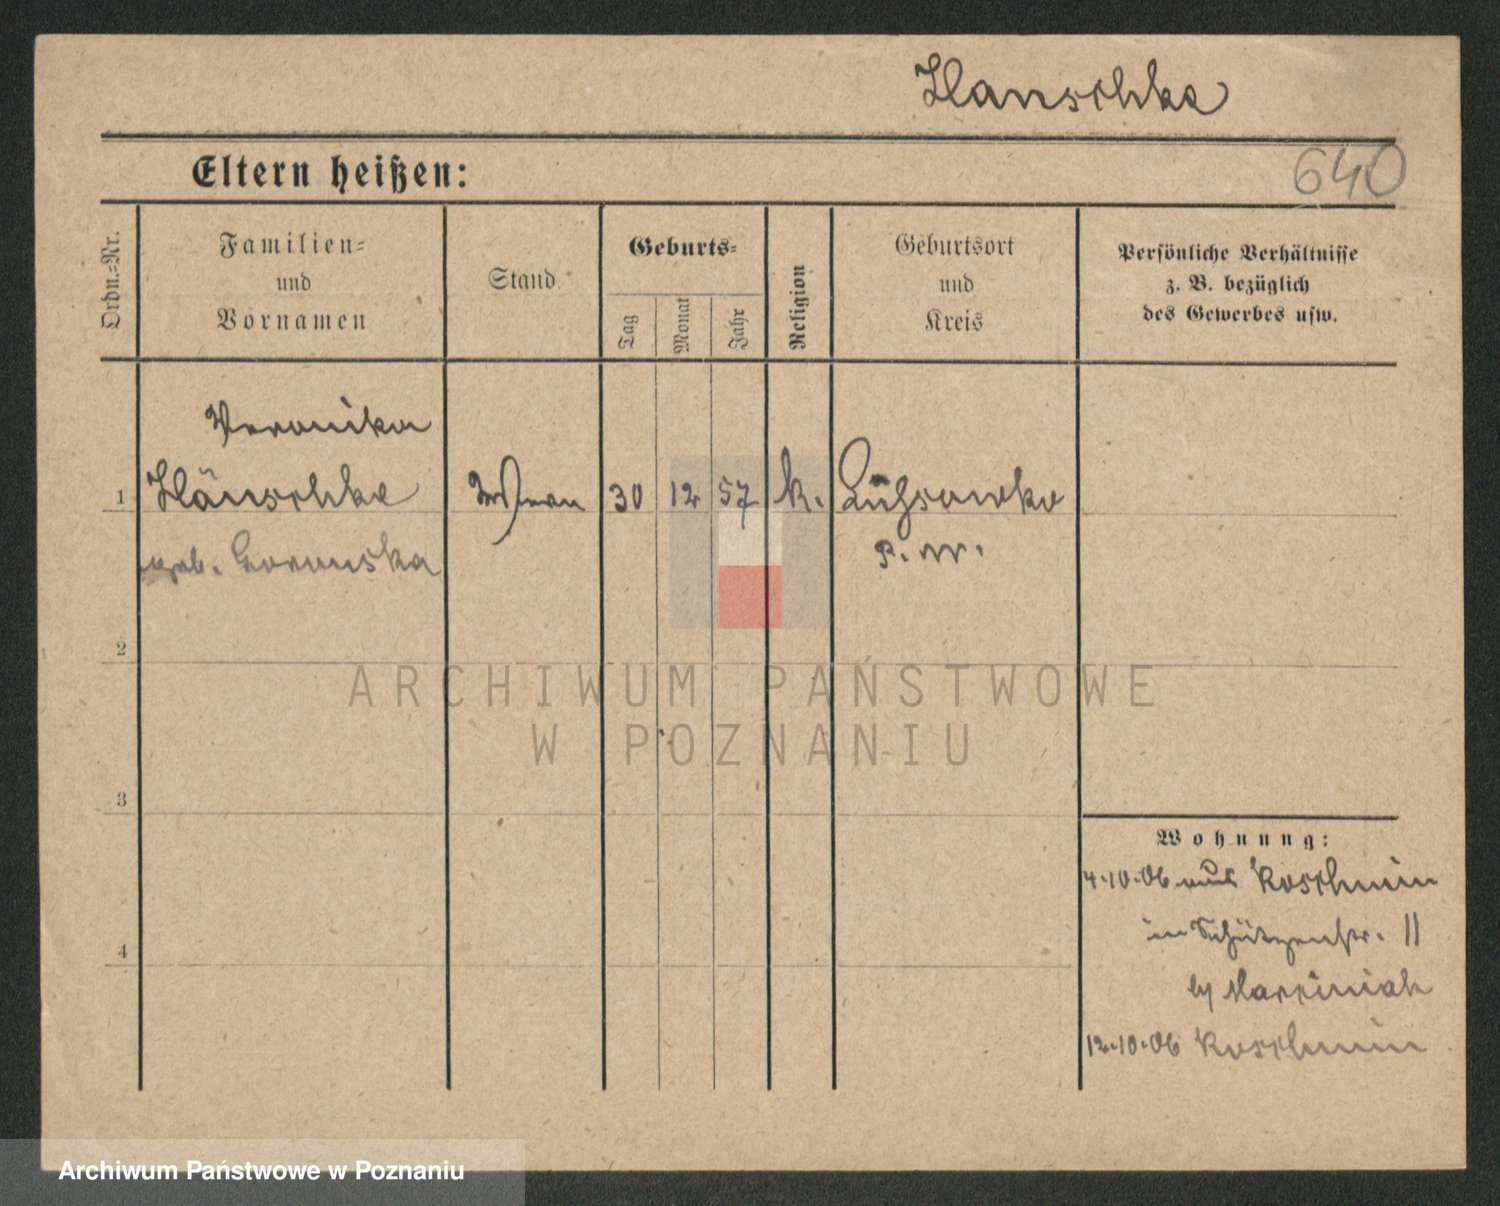 Hänschke
640
Eltern heißen:
Ordn.=Nr.
Familien=
und
Vornamen
Stand
Geburts=
Tag
Monat
Jahr
Religion
Geburtsort
und
Kreis
Persönliche Verhältnisse
z. B. bezüglich
des Gewerbes usw.
Veronika
1 Hänschke 30 12 57 k.
geb.
P. W.
2
3
4
Wohnung:
4.10.06 aus Koschmin
in Schützenstr. 11
by Marciniak
12.10.06 Koschmin
ARCHIWUM PAŃSTWOWE
W POZNANIU
Archiwum Państwowe w Poznaniu